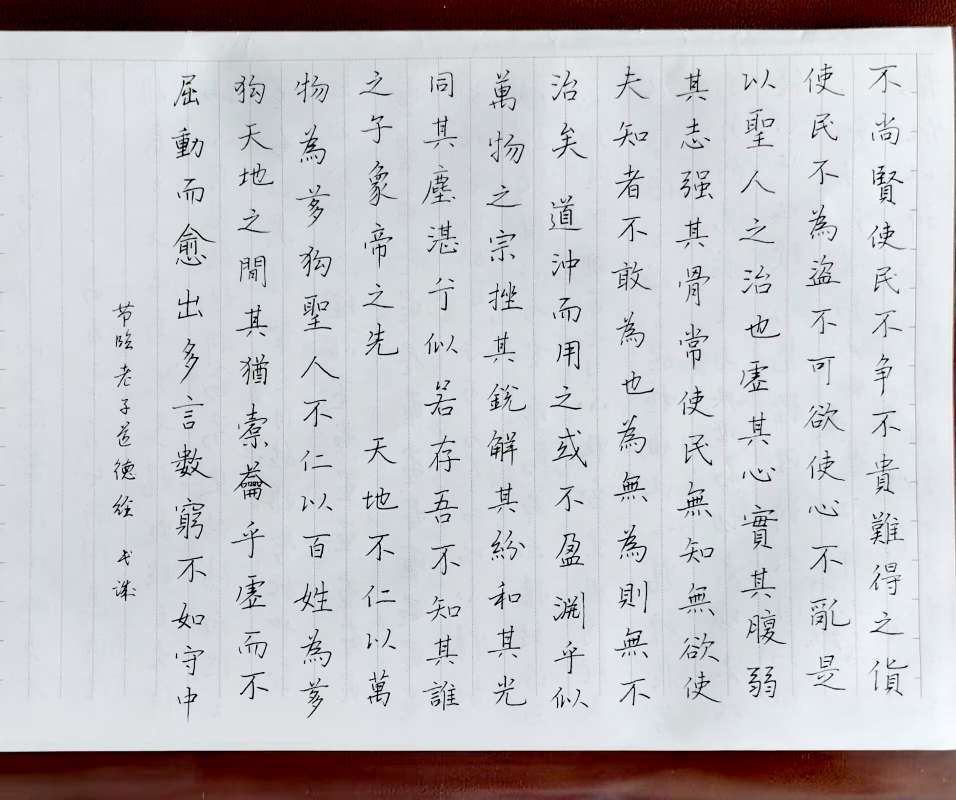 不尚賢使民不争不貴難得之貨
使民不為盜不可欲使心不亂是
以聖人之治也虛其心實其腹弱
其志强其骨常使民無知無欲使
夫知者不敢為也為無為則無不
治矣 道沖而用之或不盈淵乎似
萬物之宗挫其銳解其紛和其光
同其塵湛兮似若存吾不知其誰
之子象帝之先 天地不仁以萬
物為芻狗聖人不仁以百姓為芻
狗天地之間其猶橐籥乎虛而不
屈動而愈出多言數窮不如守中
节临老子道德经